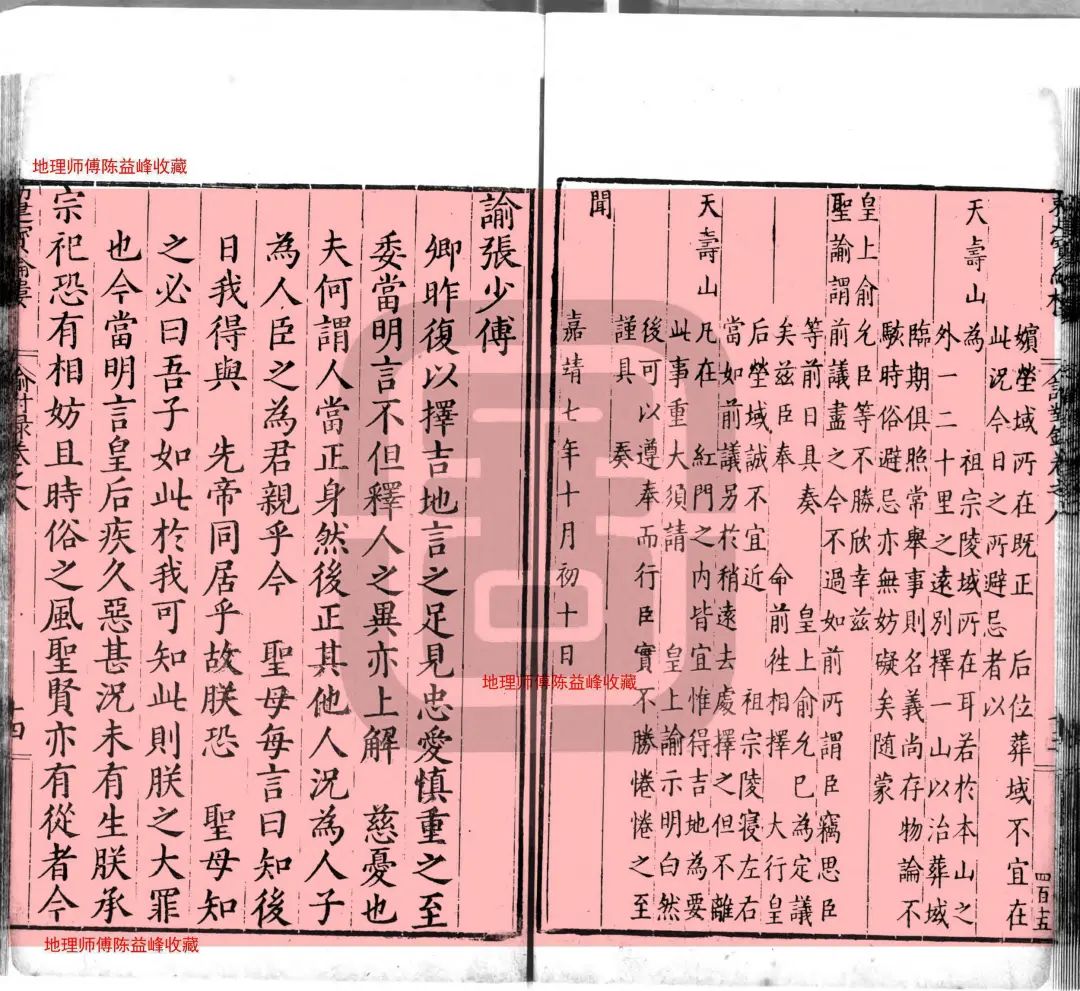 嬪塋域所在既正 后位葬域不宜在
此況今日之所避忌者以
天壽山為 祖宗陵域所在耳若於本山之
外一二十里之遠別擇一山以治葬域
臨期俱照常舉事則名義尚存物論不
駭時俗避忌亦無妨礙矣随蒙
皇上俞允臣等不勝欣幸茲
聖諭謂前議盡之今不過如前所謂臣竊思臣
等前日具奏 皇上俞允已為定議
矣茲臣奉 命前徃相擇 大行皇
后塋域誠不宜近 祖宗陵寢左右
當如前議另於稍遠去處擇之但不離
天壽山凡在 紅門之內皆宜惟得吉地為要
此事重大須請 皇上諭示明白然
後可以遵奉而行臣實不勝惓惓之至
謹具 奏
聞
嘉靖七年十月初十日
四百十五
諭張少傅
卿昨復以擇吉地言之足見忠愛慎重之至
委當明言不但釋人之異亦上解 慈憂也
夫何謂人當正身然後正其他人況為人子
為人臣之為君親乎今 聖母每言曰知後
日我得與 先帝同居乎故朕恐 聖母知
之必曰吾子如此於我可知此則朕之大罪
也今當明言皇后疾久惡甚況未有生朕承
宗祀恐有相妨且時俗之風聖賢亦有從者今
地理师傅陈益峰收藏
地理师傅陈益峰收藏
地理师傅陈益峰收藏